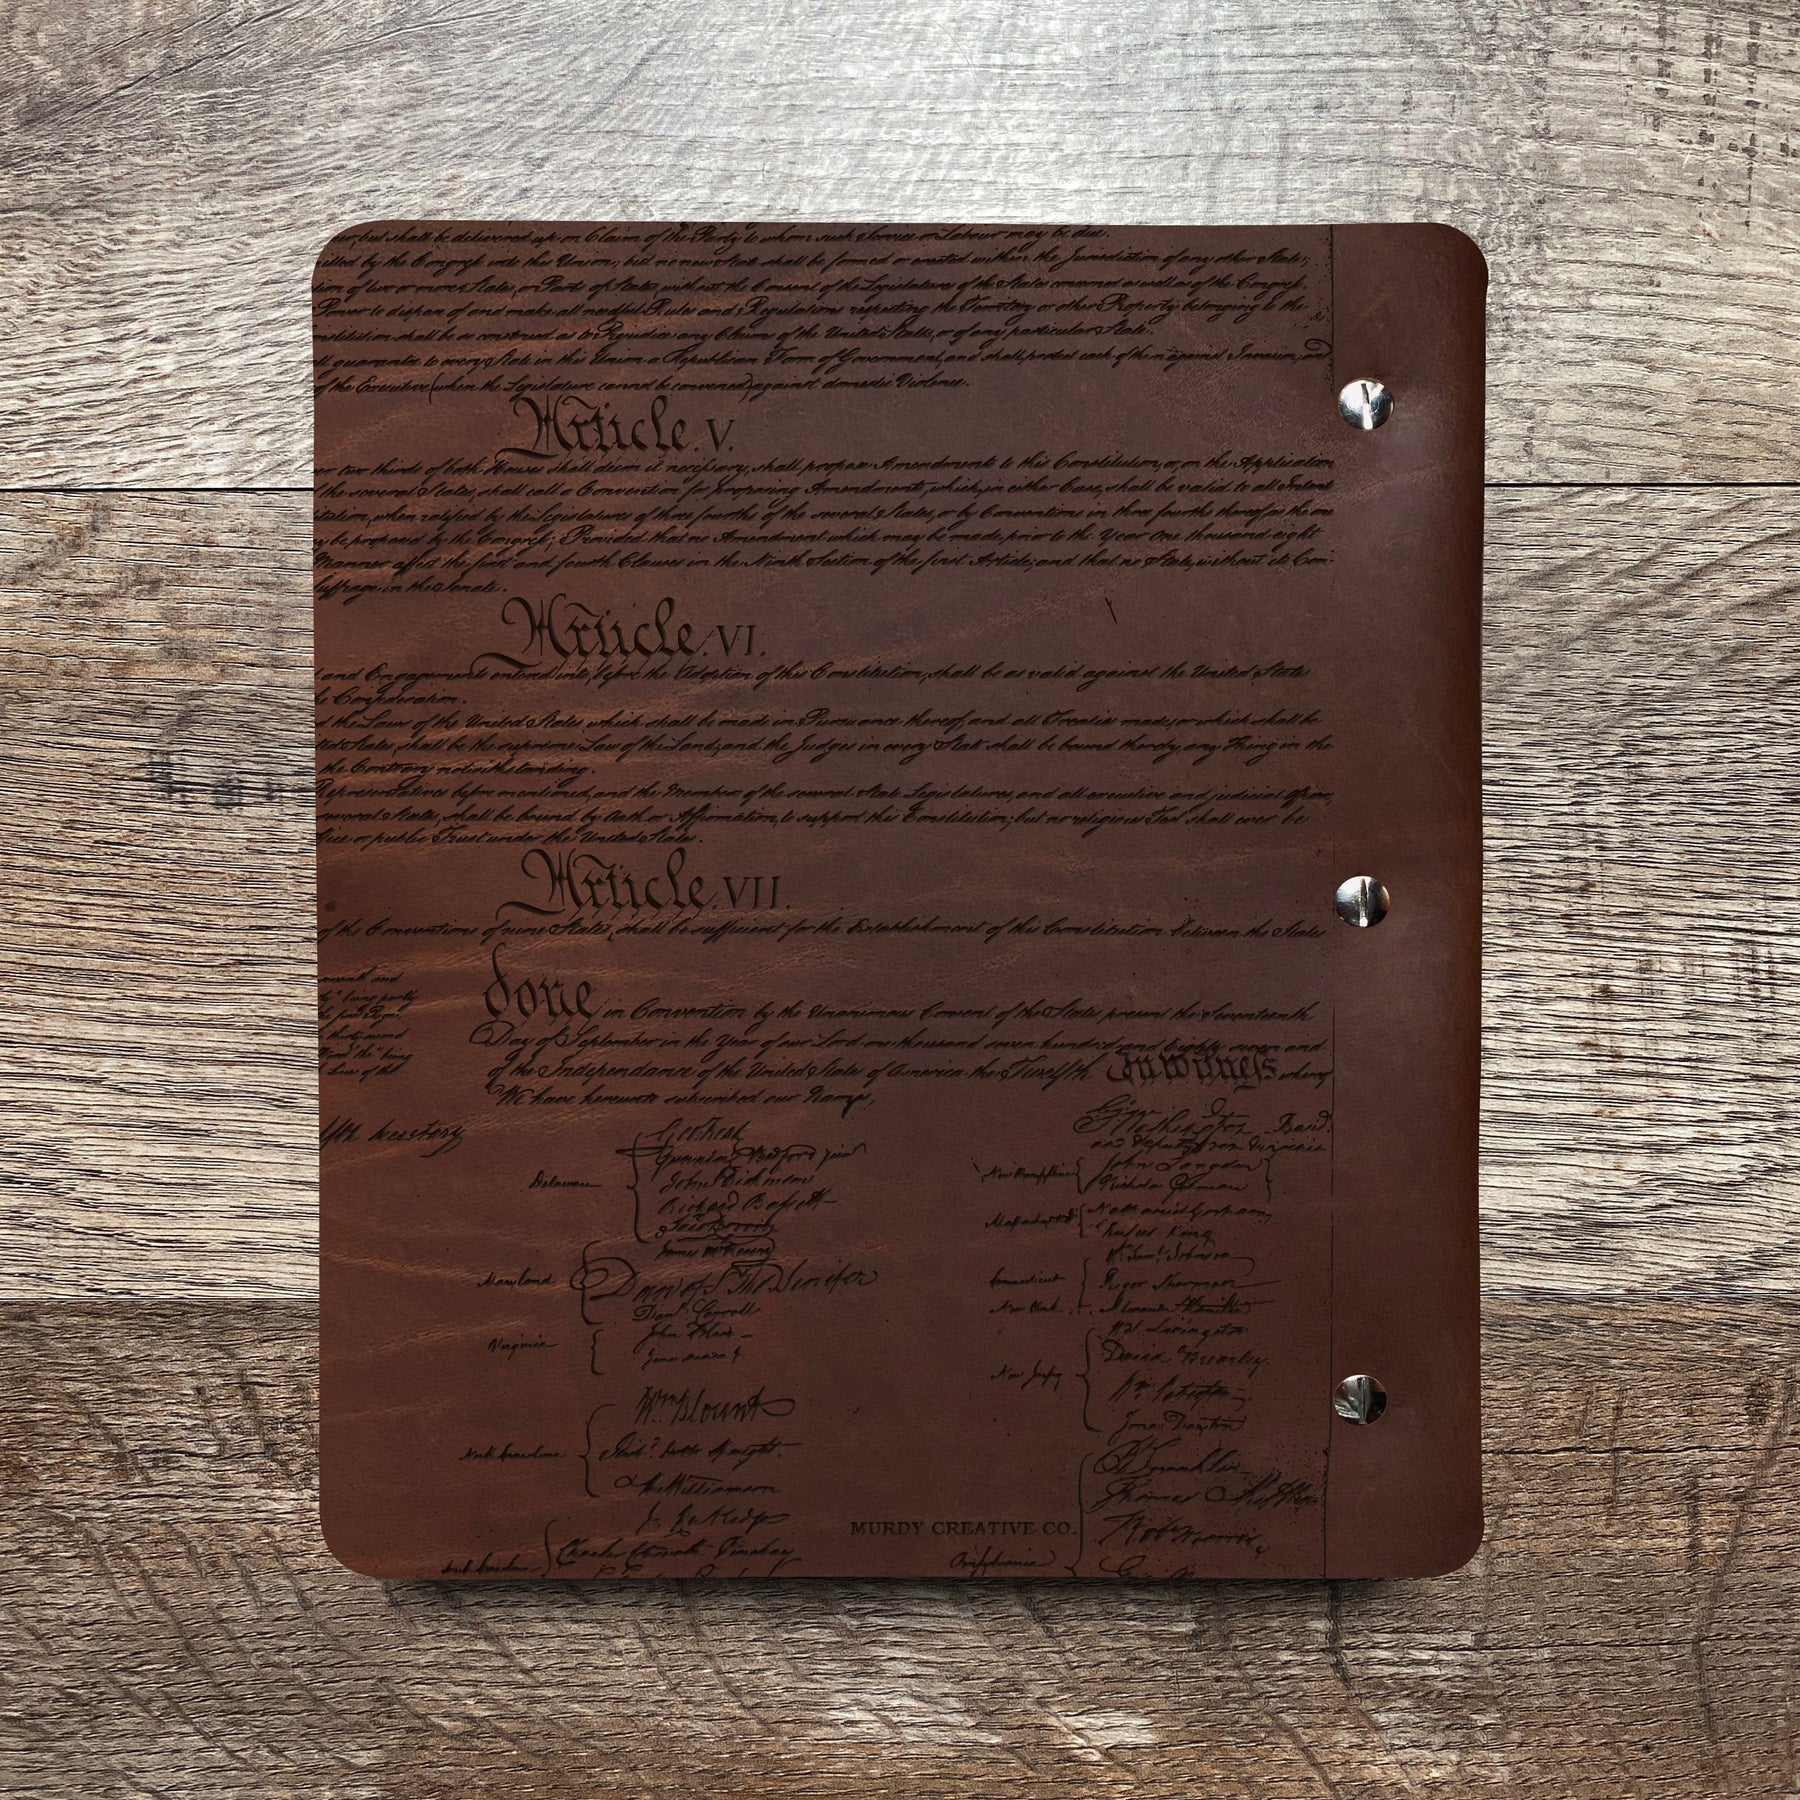 but shall be delivered up on Claim of the Party to whom such Service or Labour may be due.
by the Congress into this Union; but no new State shall be formed or erected within the Jurisdiction of any other State;
of two or more States, or Parts of States, without the Consent of the Legislatures of the States concerned as well as of the Congress.
Power to dispose of and make all needful Rules and Regulations respecting the Territory or other Property belonging to the
shall be so construed as to Prejudice any Claims of the United States, or of any particular State.
guarantee to every State in this Union a Republican Form of Government, and shall protect each of them against Invasion; and
of the Executive (when the Legislature cannot be convened) against domestic Violence.
Article. V.
two thirds of both Houses shall deem it necessary, shall propose Amendments to this Constitution, or, on the Application
the several States, shall call a Convention for proposing Amendments, which, in either Case, shall be valid to all Intents
when ratified by the Legislatures of three fourths of the several States, or by Conventions in three fourths thereof, as the one
be proposed by the Congress; Provided that no Amendment which may be made prior to the Year One thousand eight
Manner affect the first and fourth Clauses in the Ninth Section of the first Article; and that no State, without its Con-
suffrage in the Senate.
Article. VI.
and Engagements entered into, before the Adoption of this Constitution, shall be as valid against the United States
Confederation.
the Laws of the United States which shall be made in Pursuance thereof; and all Treaties made, or which shall be
States, shall be the supreme Law of the Land; and the Judges in every State shall be bound thereby, any Thing in the
the Contrary notwithstanding.
Representatives before mentioned, and the Members of the several State Legislatures, and all executive and judicial Officers,
several States, shall be bound by Oath or Affirmation, to support this Constitution; but no religious Test shall ever be
or public Trust under the United States.
Article. VII.
of the Conventions of nine States, shall be sufficient for the Establishment of this Constitution between the States
done in Convention by the Unanimous Consent of the States present the Seventeenth
Day of September in the Year of our Lord one thousand seven hundred and Eighty seven and
of the Independance of the United States of America the Twelfth In Witness whereof
We have hereunto subscribed our Names,
and
being partly
"the" being
Line of the
secretary
Go Washington Presidt
and deputy from Virginia
Delaware
Geo: Read
Gunning Bedford jun
John Dickinson
Richard Bassett
Jaco: Broom
Maryland
James McHenry
Dan of St Tho Jenifer
Danl Carroll
Virginia
John Blair —
James Madison Jr
North Carolina
Wm Blount
Richd Dobbs Spaight.
Hu Williamson
South Carolina
J. Rutledge
Charles Cotesworth Pinckney
New Hampshire
John Langdon
Nicholas Gilman
Massachusetts
Nathaniel Gorham
Rufus King
Connecticut
Wm Saml Johnson
Roger Sherman
New York . . Alexander Hamilton
New Jersey
Wil: Livingston
David Brearley.
Wm Paterson.
Jona: Dayton
Pensylvania
B Franklin
Thomas Mifflin
Robt Morris
MURDY CREATIVE CO.